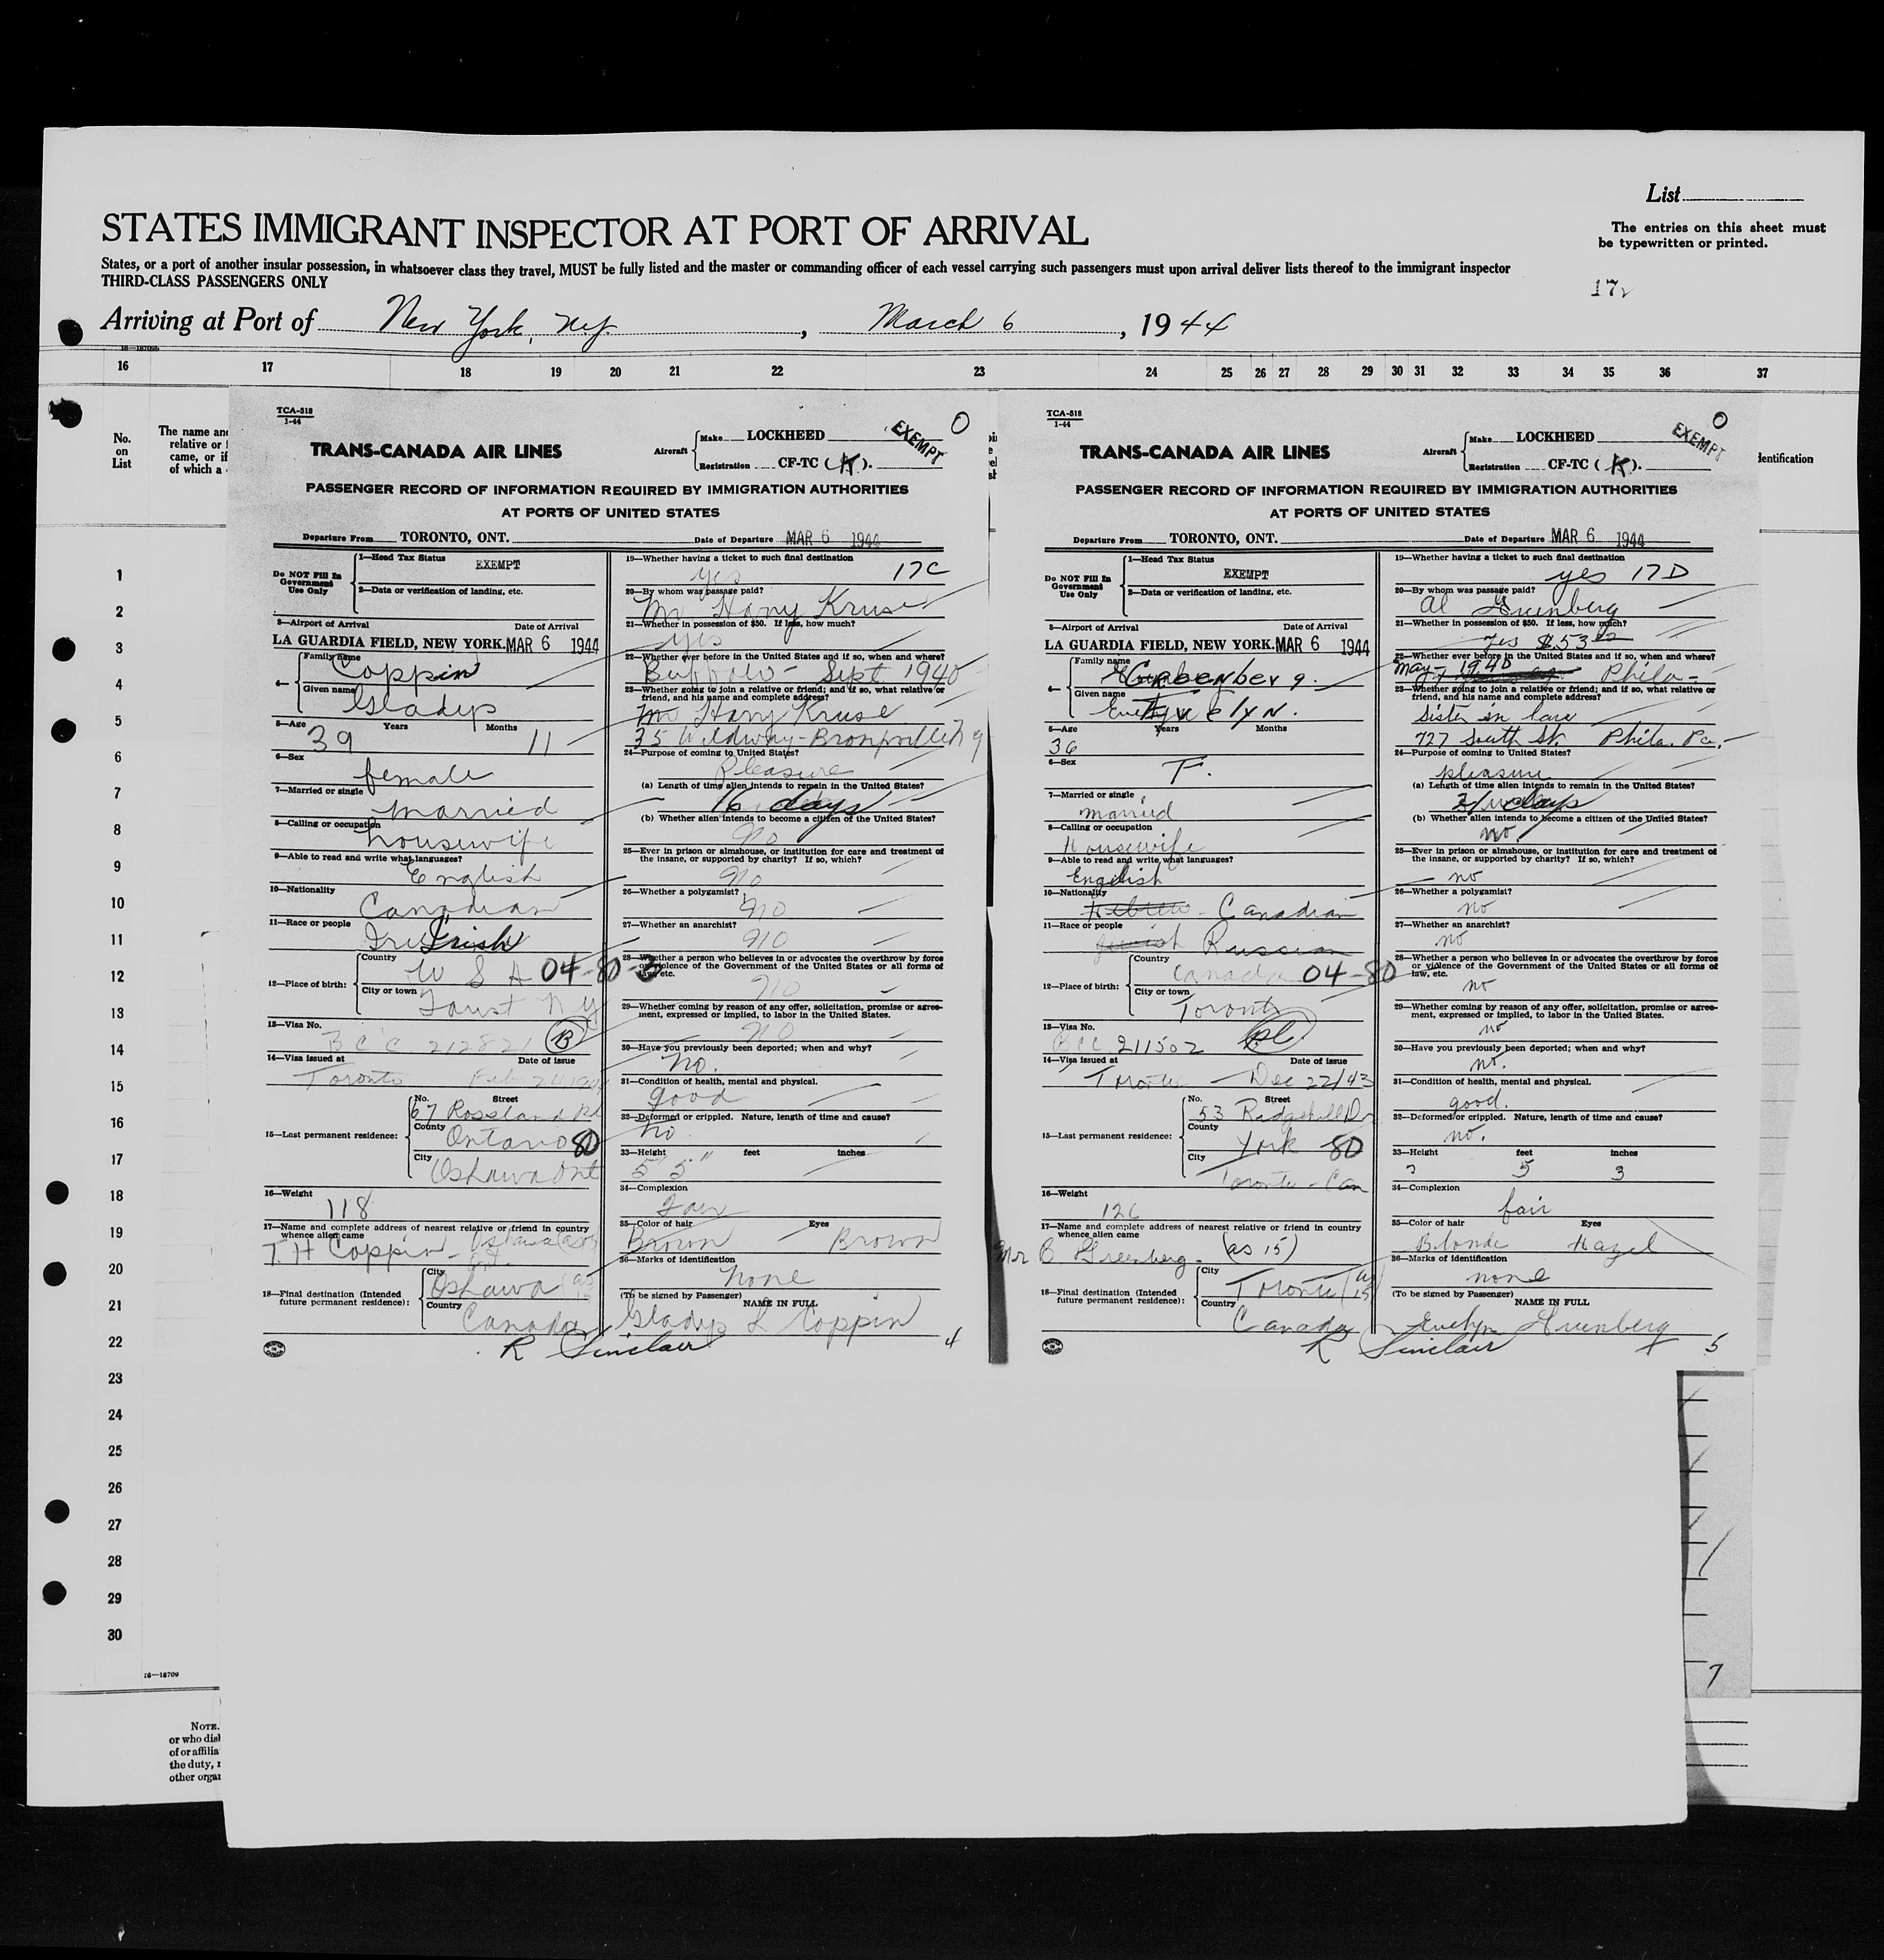 List
STATES IMMIGRANT INSPECTOR AT PORT OF ARRIVAL
The entries on this sheet must
be typewritten or printed.
States, or a port of another insular possession, in whatsoever class they travel, MUST be fully listed and the master or commanding officer of each vessel carrying such passengers must upon arrival deliver lists thereof to the immigrant inspector
THIRD-CLASS PASSENGERS ONLY
Arriving at Port of New York, N.Y. , March 6 , 1944
16 17 18 19 20 21 22 23 24 25 26 27 28 29 30 31 32 33 34 35 36 37
No.
on
List
The name and
relative or
came, or if
of which a
1
2
3
4
5
6
7
8
9
10
11
12
13
14
15
16
17
18
19
20
21
22
23
24
25
26
27
28
29
30
16—18709
NOTE.
or who
of or affilia
the duty,
other
TCA-518
1-44
TRANS-CANADA AIR LINES
Aircraft
Make LOCKHEED
Registration CF-TC (K).
EXEMPT
0
PASSENGER RECORD OF INFORMATION REQUIRED BY IMMIGRATION AUTHORITIES
AT PORTS OF UNITED STATES
Departure From TORONTO, ONT. Date of Departure MAR 6 1944
Do NOT Fill In
Government
Use Only
1—Head Tax Status
EXEMPT
2—Data or verification of landing, etc.
3—Airport of Arrival Date of Arrival
LA GUARDIA FIELD, NEW YORK. MAR 6 1944
4—
Family name
Coppin
Given name
Gladys
5—Age Years Months
39 11
6—Sex
female
7—Married or single
married
8—Calling or occupation
housewife
9—Able to read and write what languages?
English
10—Nationality
Canadian
11—Race or people
Irish
12—Place of birth:
Country
U S A 04-80-3
City or town
Faust N Y
13—Visa No.
B C C 212821 B
14—Visa issued at Date of issue
Toronto Feb
15—Last permanent residence:
No. Street
67 Rossland Rd
County
Ontario 80
City
Oshawa Ont
16—Weight
118
17—Name and complete address of nearest relative or friend in country
whence alien came
T. H Coppin - Oshawa
18—Final destination (Intended
future permanent residence):
City
Oshawa
Country
Canada
19—Whether having a ticket to such final destination
yes 17C
20—By whom was passage paid?
Mr Harry Kruse
21—Whether in possession of $50. If less, how much?
yes
22—Whether ever before in the United States and if so, when and where?
Buffalo - Sept 1940
23—Whether going to join a relative or friend; and if so, what relative or
friend, and his name and complete address?
Mr Harry Kruse
35 Wildway - Bronxville N Y
24—Purpose of coming to United States?
Pleasure
(a) Length of time alien intends to remain in the United States?
16 days
(b) Whether alien intends to become a citizen of the United States?
No
25—Ever in prison or almshouse, or institution for care and treatment of
the insane, or supported by charity? If so, which?
No
26—Whether a polygamist?
no
27—Whether an anarchist?
no
28—Whether a person who believes in or advocates the overthrow by force
or violence of the Government of the United States or all forms of
law, etc.
no
29—Whether coming by reason of any offer, solicitation, promise or agree-
ment, expressed or implied, to labor in the United States.
no
30—Have you previously been deported; when and why?
no.
31—Condition of health, mental and physical.
good
32—Deformed or crippled. Nature, length of time and cause?
no
33—Height feet inches
5' 5"
34—Complexion
Fair
35—Color of hair Eyes
Brown - Brown
36—Marks of identification
none
(To be signed by Passenger) NAME IN FULL
Gladys L Coppin
R Sinclair 4
TCA-518
1-44
TRANS-CANADA AIR LINES
Aircraft
Make LOCKHEED
Registration CF-TC (K).
EXEMPT
0
PASSENGER RECORD OF INFORMATION REQUIRED BY IMMIGRATION AUTHORITIES
AT PORTS OF UNITED STATES
Departure From TORONTO, ONT. Date of Departure MAR 6 1944
Do NOT Fill In
Government
Use Only
1—Head Tax Status
EXEMPT
2—Data or verification of landing, etc.
3—Airport of Arrival Date of Arrival
LA GUARDIA FIELD, NEW YORK. MAR 6 1944
4—
Family name
Given name
Evelyn.
5—Age Years Months
36
6—Sex
F.
7—Married or single
married
8—Calling or occupation
Housewife
9—Able to read and write what languages?
English
10—Nationality
Hebrew - Canadian
11—Race or people
Jewish Russian
12—Place of birth:
Country
Canada 04-80
City or town
Toronto
13—Visa No.
BCC 211502
14—Visa issued at Date of issue
Toronto - Dec 22/43
15—Last permanent residence:
No. Street
53 Ridgehill Dr
County
York 80
City
Toronto - Can
16—Weight
126
17—Name and complete address of nearest relative or friend in country
whence alien came
Mr B Greenberg. (as 15)
18—Final destination (Intended
future permanent residence):
City
Toronto (as 15)
Country
Canada
19—Whether having a ticket to such final destination
yes 17D
20—By whom was passage paid?
Al Greenberg
21—Whether in possession of $50. If less, how much?
Yes $53
22—Whether ever before in the United States and if so, when and where?
May - 1940 Phila -
23—Whether going to join a relative or friend; and if so, what relative or
friend, and his name and complete address?
Sister in law
727 South St. Phila. Pa.
24—Purpose of coming to United States?
pleasure
(a) Length of time alien intends to remain in the United States?
days
(b) Whether alien intends to become a citizen of the United States?
no
25—Ever in prison or almshouse, or institution for care and treatment of
the insane, or supported by charity? If so, which?
no
26—Whether a polygamist?
no
27—Whether an anarchist?
no
28—Whether a person who believes in or advocates the overthrow by force
or violence of the Government of the United States or all forms of
law, etc.
no
29—Whether coming by reason of any offer, solicitation, promise or agree-
ment, expressed or implied, to labor in the United States.
no
30—Have you previously been deported; when and why?
no.
31—Condition of health, mental and physical.
good.
32—Deformed or crippled. Nature, length of time and cause?
no.
33—Height feet inches
5 3
34—Complexion
fair
35—Color of hair Eyes
Blonde Hazel
36—Marks of identification
none
(To be signed by Passenger) NAME IN FULL
Evelyn Greenberg
R Sinclair 5
identification
7